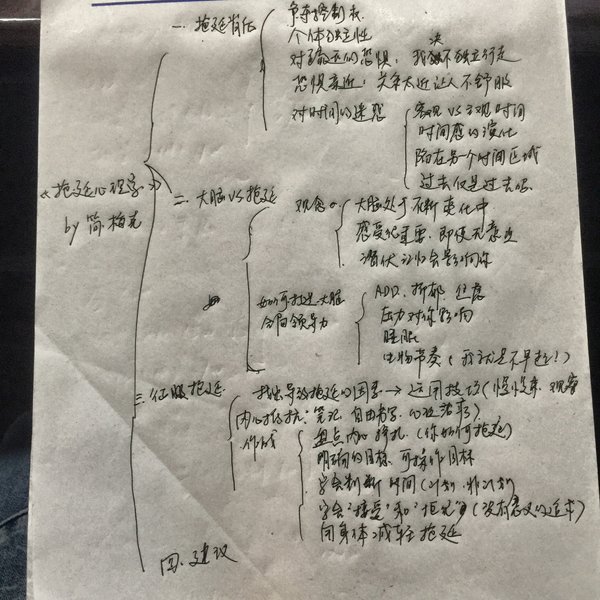 一. 拖延背后
争夺控制权
个体独立性
对疏远的恐惧: 我决不独立行走
恐惧亲近: 关系太近让人不舒服
对时间的迷惑
客观 VS 主观时间
时间感的演化
陷在另个时间区域
过去仅是过去吗
《拖延心理学》
by 简.博克
二. 大脑 VS 拖延
观念
大脑处于不断变化中
感受很重要, 即使无意识
潜伏记忆会影响你
如何打造大脑
ADD、抑郁 焦虑
压力对你影响
睡眠
生物节奏 (我就是不早起!)
三. 征服拖延
找出导致拖延的因素 → 运用技巧 (慢慢来 观察
内心抵抗: 笔记 自由书写
作战
盘点内心挣扎 (你如何拖延)
明确的目标. 可操作目标
学会判断时间 (计划. 非计划
学会"接受"和"拒绝" (没有意义的追求)
用身体减轻拖延
四. 建议